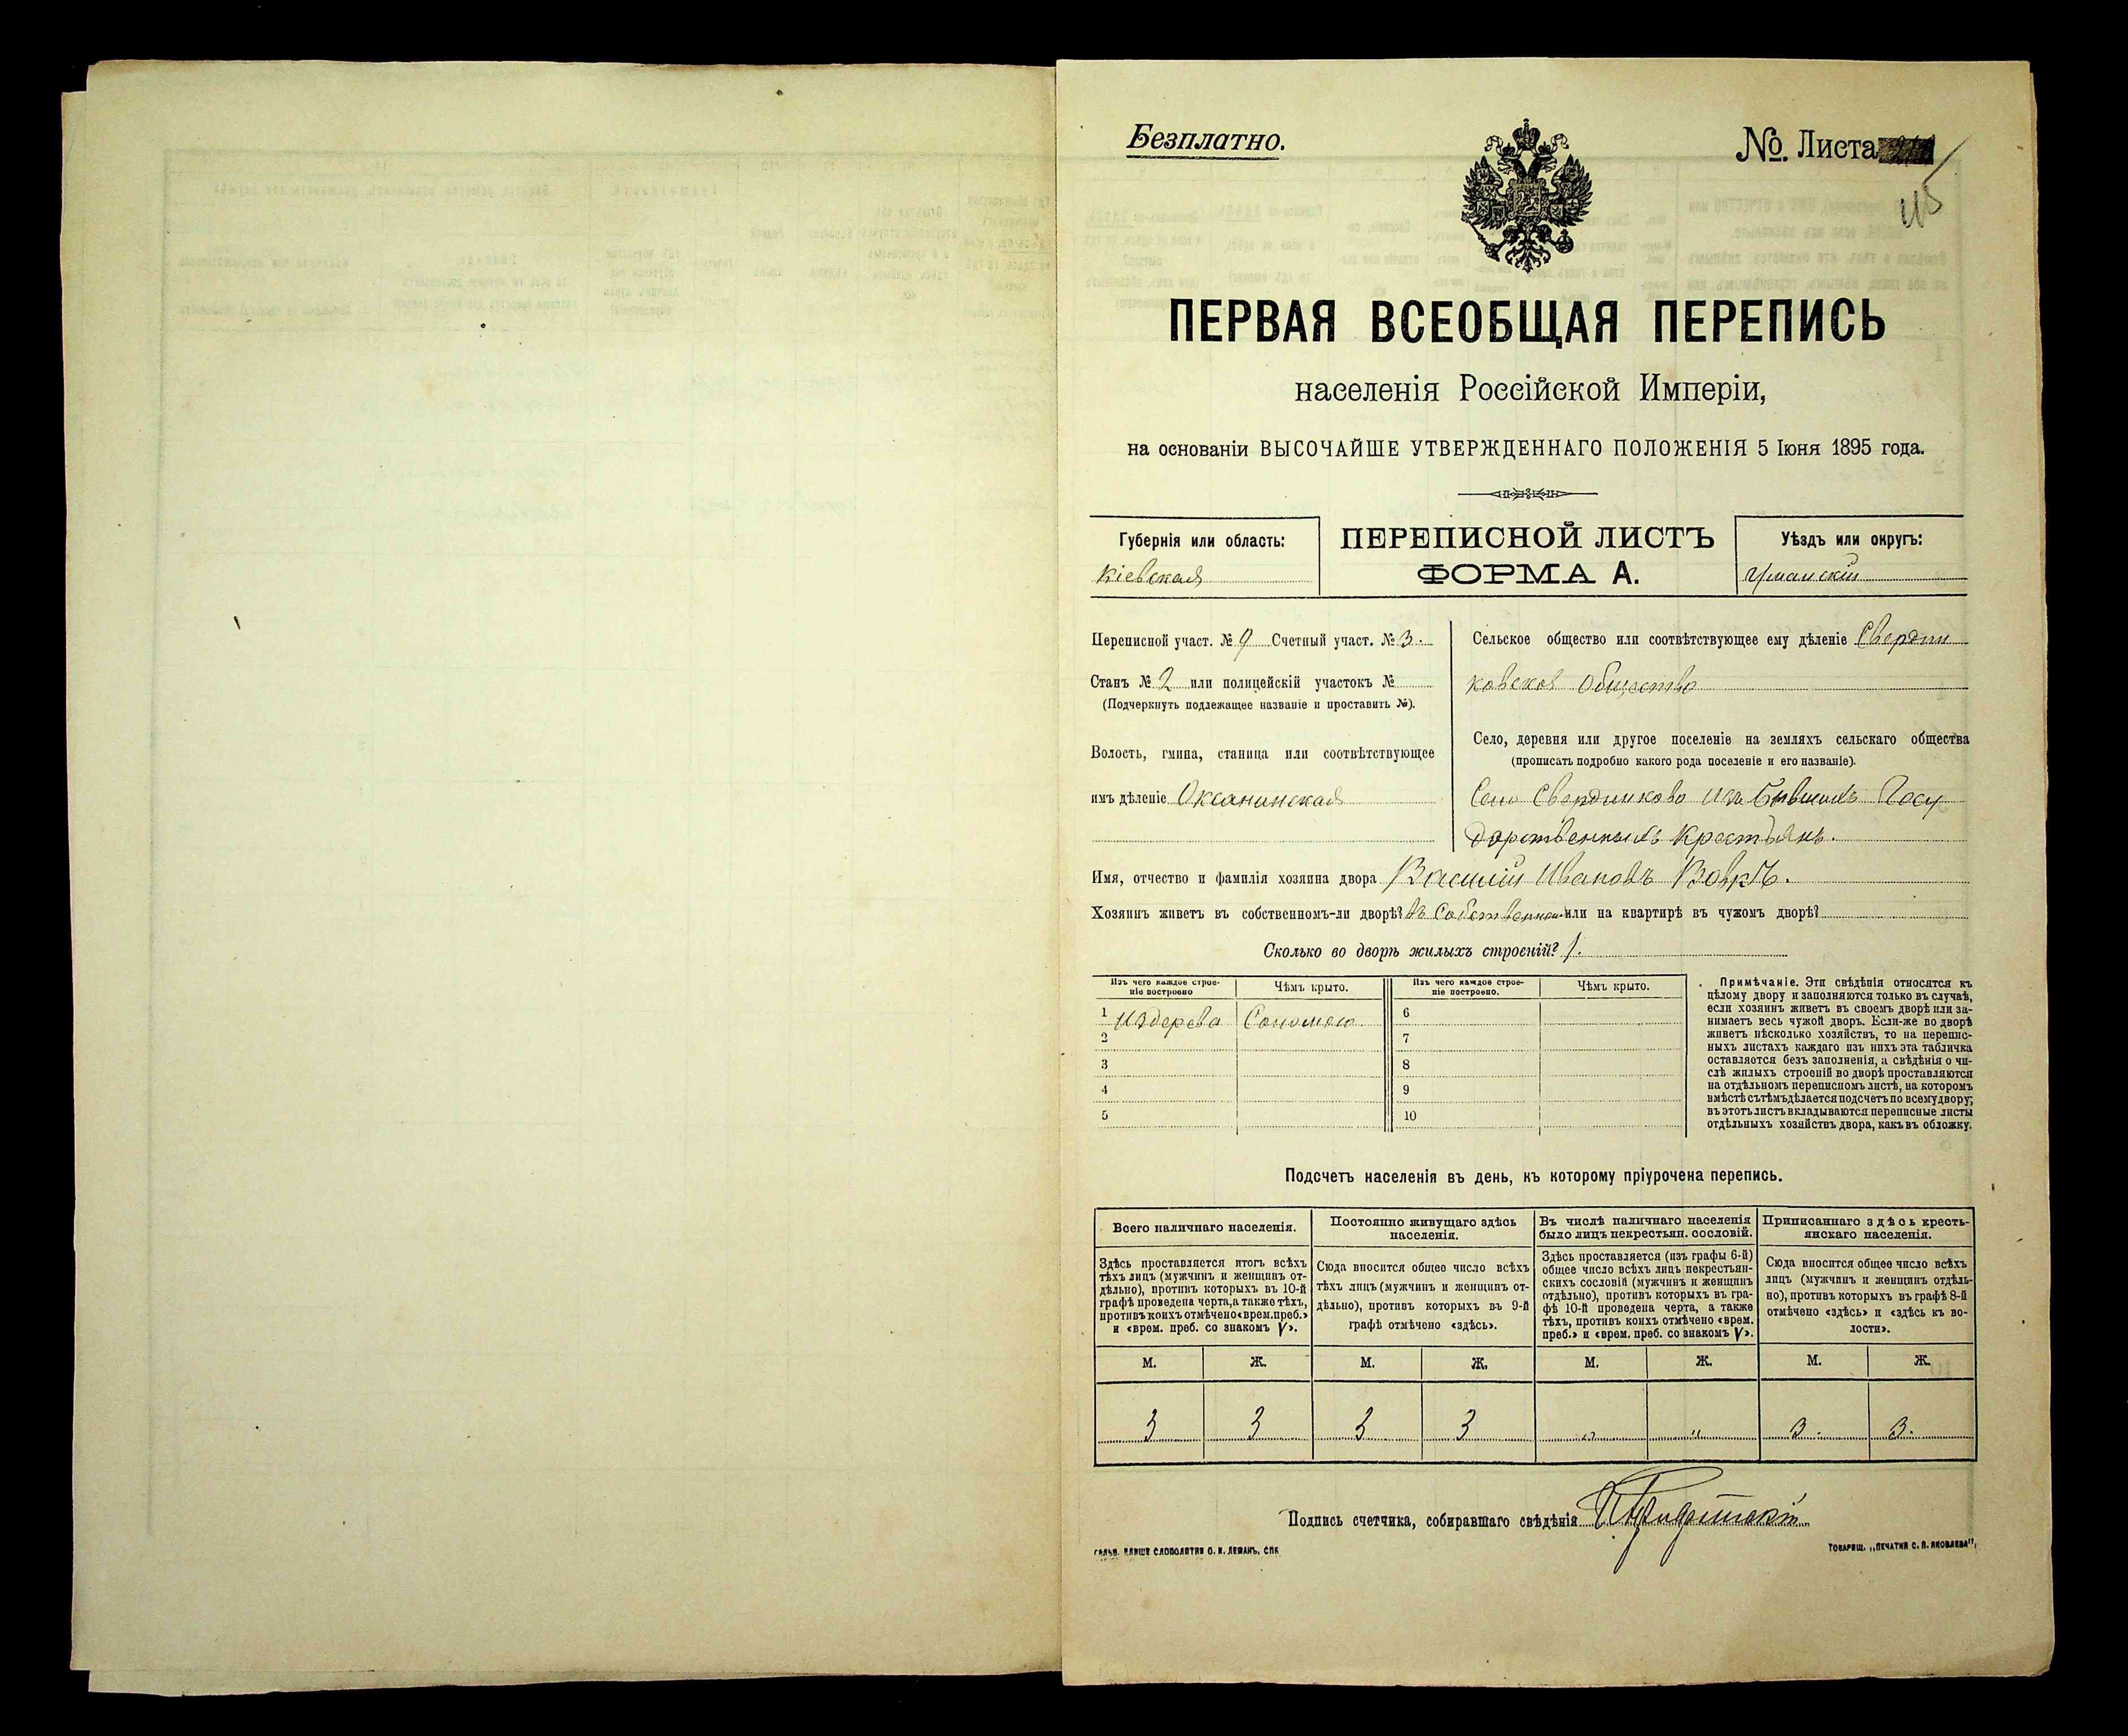 Безплатно.
№. Листа
115
ПЕРВАЯ ВСЕОБЩАЯ ПЕРЕПИСЬ
населенія Россійской Имперіи,
на основаніи ВЫСОЧАЙШЕ УТВЕРЖДЕННАГО ПОЛОЖЕНІЯ 5 Іюня 1895 года.
Губернія или область:
Кіевская
ПЕРЕПИСНОЙ ЛИСТЪ
ФОРМА А.
Уѣздъ или округъ:
Уманскій
Переписной участ. № 9 Счетный участ. № 3.
Станъ № 2 или полицейскій участокъ №
(Подчеркнуть подлежащее названіе и проставить №).
Волость, гмина, станица или соотвѣтствующее
имъ дѣленіе Оксанинская
Сельское общество или соотвѣтствующее ему дѣленіе Свердли
ковское Общество
Село, деревня или другое поселеніе на земляхъ сельскаго общества
(прописать подробно какого рода поселеніе и его названіе).
Село Свердликово изъ бывшихъ Госу
дарственныхъ Крестьянъ.
Имя, отчество и фамилія хозяина двора Василій Ивановъ Вовкъ.
Хозяинъ живетъ въ собственномъ-ли дворѣ? въ Собственном или на квартирѣ въ чужомъ дворѣ?
Сколько во дворѣ жилыхъ строеній? 1.
Изъ чего каждое строе-
ніе построено
Чѣмъ крыто.
Изъ чего каждое строе-
ніе построено.
Чѣмъ крыто.
1 Издерева Соломою 6
2 7
3 8
4 9
5 10
Примѣчаніе. Эти свѣдѣнія относятся къ
цѣлому двору и заполняются только въ случаѣ,
если хозяинъ живетъ въ своемъ дворѣ или за-
нимаетъ весь чужой дворъ. Если-же во дворѣ
живетъ нѣсколько хозяйствъ, то на перепис-
ныхъ листахъ каждаго изъ нихъ эта табличка
оставляется безъ заполненія, а свѣдѣнія о чи-
слѣ жилыхъ строеній во дворѣ проставляются
на отдѣльномъ переписномъ листѣ, на которомъ
вмѣстѣ съ тѣмъ дѣлается подсчетъ по всему двору;
въ этотъ листъ вкладываются переписные листы
отдѣльныхъ хозяйствъ двора, какъ въ обложку.
Подсчетъ населенія въ день, къ которому пріурочена перепись.
Всего наличнаго населенія.
Здѣсь проставляется итогъ всѣхъ
тѣхъ лицъ (мужчинъ и женщинъ от-
дѣльно), противъ которыхъ въ 10-й
графѣ проведена черта, а также тѣхъ,
противъ коихъ отмѣчено «врем. преб.»
и «врем. преб. со знакомъ V».
Постоянно живущаго здѣсь
населенія.
Сюда вносится общее число всѣхъ
тѣхъ лицъ (мужчинъ и женщинъ от-
дѣльно), противъ которыхъ въ 9-й
графѣ отмѣчено «здѣсь».
Въ числѣ наличнаго населенія
было лицъ некрестьян. сословій.
Здѣсь проставляется (изъ графы 6-й)
общее число всѣхъ лицъ некрестьян-
скихъ сословій (мужчинъ и женщинъ
отдѣльно), противъ которыхъ въ гра-
фѣ 10-й проведена черта, а также
тѣхъ, противъ коихъ отмѣчено «врем.
преб.» и «врем. преб. со знакомъ V».
Приписаннаго здѣсь кресть-
янскаго населенія.
Сюда вносится общее число всѣхъ
лицъ (мужчинъ и женщинъ отдѣль-
но), противъ которыхъ въ графѣ 8-й
отмѣчено «здѣсь» и «здѣсь къ во-
лости».
М. Ж. М. Ж. М. Ж. М. Ж.
3 3 3 3 " " 3. 3.
Подпись счетчика, собиравшаго свѣдѣнія
СЛОВОЛИТНИ О. И. ЛЕМАНЪ, СПБ
ТОВАРИЩ. „ПЕЧАТНЯ С. П. ЯКОВЛЕВА",